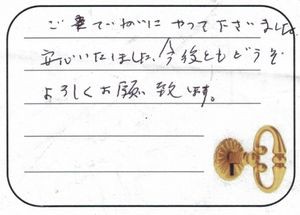 ごていねいにやって下さいました
安心いたしました、今後ともどうぞ
よろしくお願い致します。